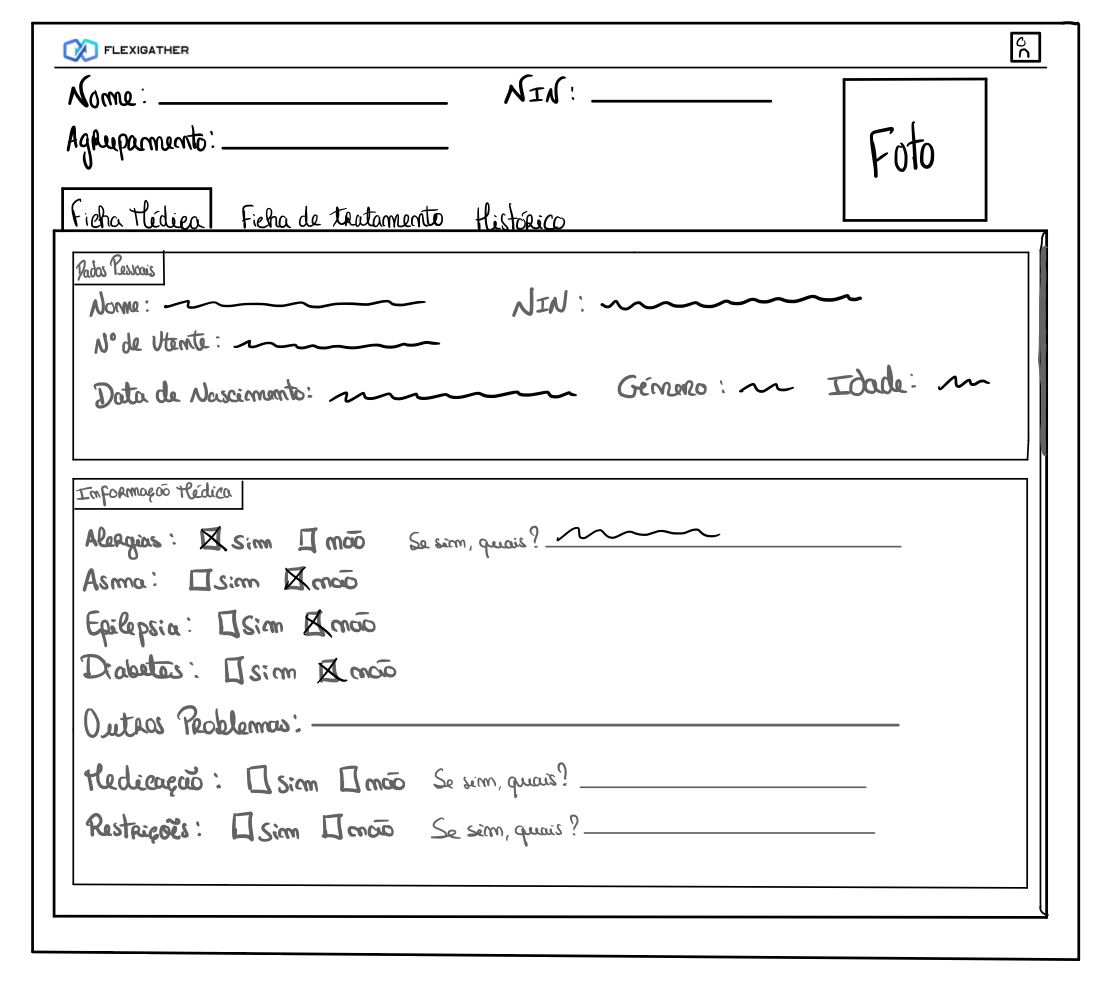 FLEXIGATHER
Nome: NIN:
Agrupamento:
Foto
Ficha Médica Ficha de tratamento Histórico
Dados Pessoais
Nome: NIN:
Nº de Utente:
Data de Nascimento: Género: Idade:
Informação Médica
Alergias: Sim não Se sim, quais?
Asma: Sim não
Epilepsia: Sim não
Diabetes: Sim não
Outros Problemas:
Medicação: Sim não Se sim, quais?
Restrições: Sim não Se sim, quais?